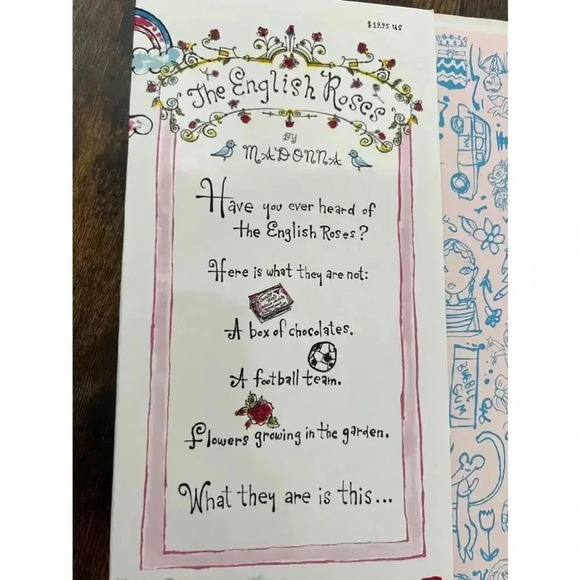 $19.95 US
The English Roses
BY
MADONNA
Have you ever heard of
the English Roses?
Here is what they are not:
A box of chocolates.
A football team.
Flowers growing in the garden.
What they are is this...
BUBBLE
GUM